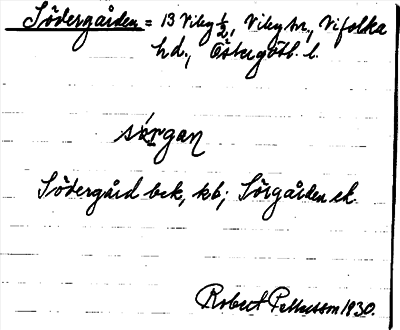 Södergården = 13 Viby ½, Viby sn., Vifolka
hd., Östergötl. l.
sörgan
Södergård bek, kb; Sörgården ek.
Robert Pettersson 1930.